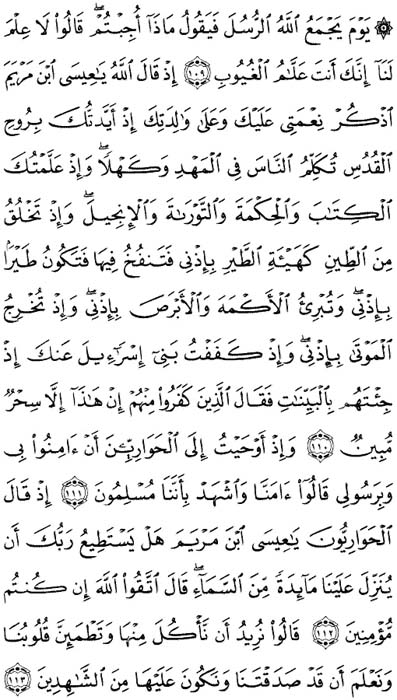 ۞ يَوۡمَ يَجۡمَعُ ٱللَّهُ ٱلرُّسُلَ فَيَقُولُ مَاذَآ أُجِبۡتُمۡۖ قَالُواْ لَا عِلۡمَ
لَنَآۖ إِنَّكَ أَنتَ عَلَّٰمُ ٱلۡغُيُوبِ ١٠٩ إِذۡ قَالَ ٱللَّهُ يَٰعِيسَى ٱبۡنَ مَرۡيَمَ
ٱذۡكُرۡ نِعۡمَتِي عَلَيۡكَ وَعَلَىٰ وَٰلِدَتِكَ إِذۡ أَيَّدتُّكَ بِرُوحِ
ٱلۡقُدُسِ تُكَلِّمُ ٱلنَّاسَ فِي ٱلۡمَهۡدِ وَكَهۡلٗاۖ وَإِذۡ عَلَّمۡتُكَ
ٱلۡكِتَٰبَ وَٱلۡحِكۡمَةَ وَٱلتَّوۡرَىٰةَ وَٱلۡإِنجِيلَۖ وَإِذۡ تَخۡلُقُ
مِنَ ٱلطِّينِ كَهَيۡـَٔةِ ٱلطَّيۡرِ بِإِذۡنِي فَتَنفُخُ فِيهَا فَتَكُونُ طَيۡرَۢا
بِإِذۡنِيۖ وَتُبۡرِئُ ٱلۡأَكۡمَهَ وَٱلۡأَبۡرَصَ بِإِذۡنِيۖ وَإِذۡ تُخۡرِجُ
ٱلۡمَوۡتَىٰ بِإِذۡنِيۖ وَإِذۡ كَفَفۡتُ بَنِيٓ إِسۡرَٰٓءِيلَ عَنكَ إِذۡ
جِئۡتَهُم بِٱلۡبَيِّنَٰتِ فَقَالَ ٱلَّذِينَ كَفَرُواْ مِنۡهُمۡ إِنۡ هَٰذَآ إِلَّا سِحۡرٞ
مُّبِينٞ ١١٠ وَإِذۡ أَوۡحَيۡتُ إِلَى ٱلۡحَوَارِيِّـۧنَ أَنۡ ءَامِنُواْ بِي
وَبِرَسُولِي قَالُوٓاْ ءَامَنَّا وَٱشۡهَدۡ بِأَنَّنَا مُسۡلِمُونَ ١١١ إِذۡ قَالَ
ٱلۡحَوَارِيُّونَ يَٰعِيسَى ٱبۡنَ مَرۡيَمَ هَلۡ يَسۡتَطِيعُ رَبُّكَ أَن
يُنَزِّلَ عَلَيۡنَا مَآئِدَةٗ مِّنَ ٱلسَّمَآءِۖ قَالَ ٱتَّقُواْ ٱللَّهَ إِن كُنتُم
مُّؤۡمِنِينَ ١١٢ قَالُواْ نُرِيدُ أَن نَّأۡكُلَ مِنۡهَا وَتَطۡمَئِنَّ قُلُوبُنَا
وَنَعۡلَمَ أَن قَدۡ صَدَقۡتَنَا وَنَكُونَ عَلَيۡهَا مِنَ ٱلشَّٰهِدِينَ ١١٣